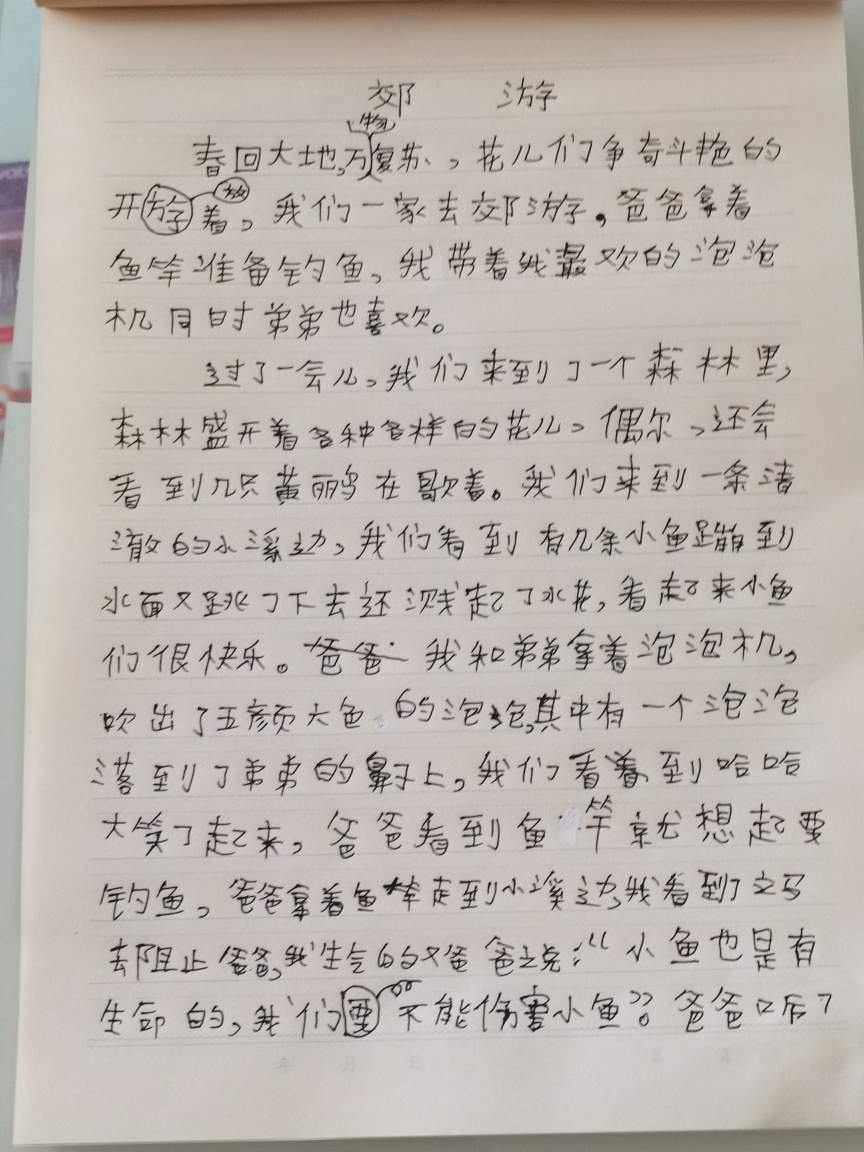 郊 游
春回大地,万物复苏、,花儿们争奇斗艳的
开放着,我们一家去郊游。爸爸拿着
鱼竿准备钓鱼,我带着我最欢的泡泡
机同时弟弟也喜欢。
过了一会儿,我们来到了一个森林里,
森林盛开着各种各样的花儿,偶尔,还会
看到几只黄鹂在歌着。我们来到一条清
澈的小溪边,我们看到有几条小鱼蹦到
水面又跳了下去还溅起了水花,看起来小鱼
们很快乐。我和弟弟拿着泡泡机,
吹出了五颜六色的泡泡,其中有一个泡泡
落到了弟弟的鼻子上,我们看着到哈哈
大笑了起来,爸爸看到鱼竿就想起要
钓鱼,爸爸拿着鱼竿走到小溪边,我看到了立马
去阻止爸爸,我生气的对爸爸说:“小鱼也是有
生命的,我们不能伤害小鱼”。爸爸听了